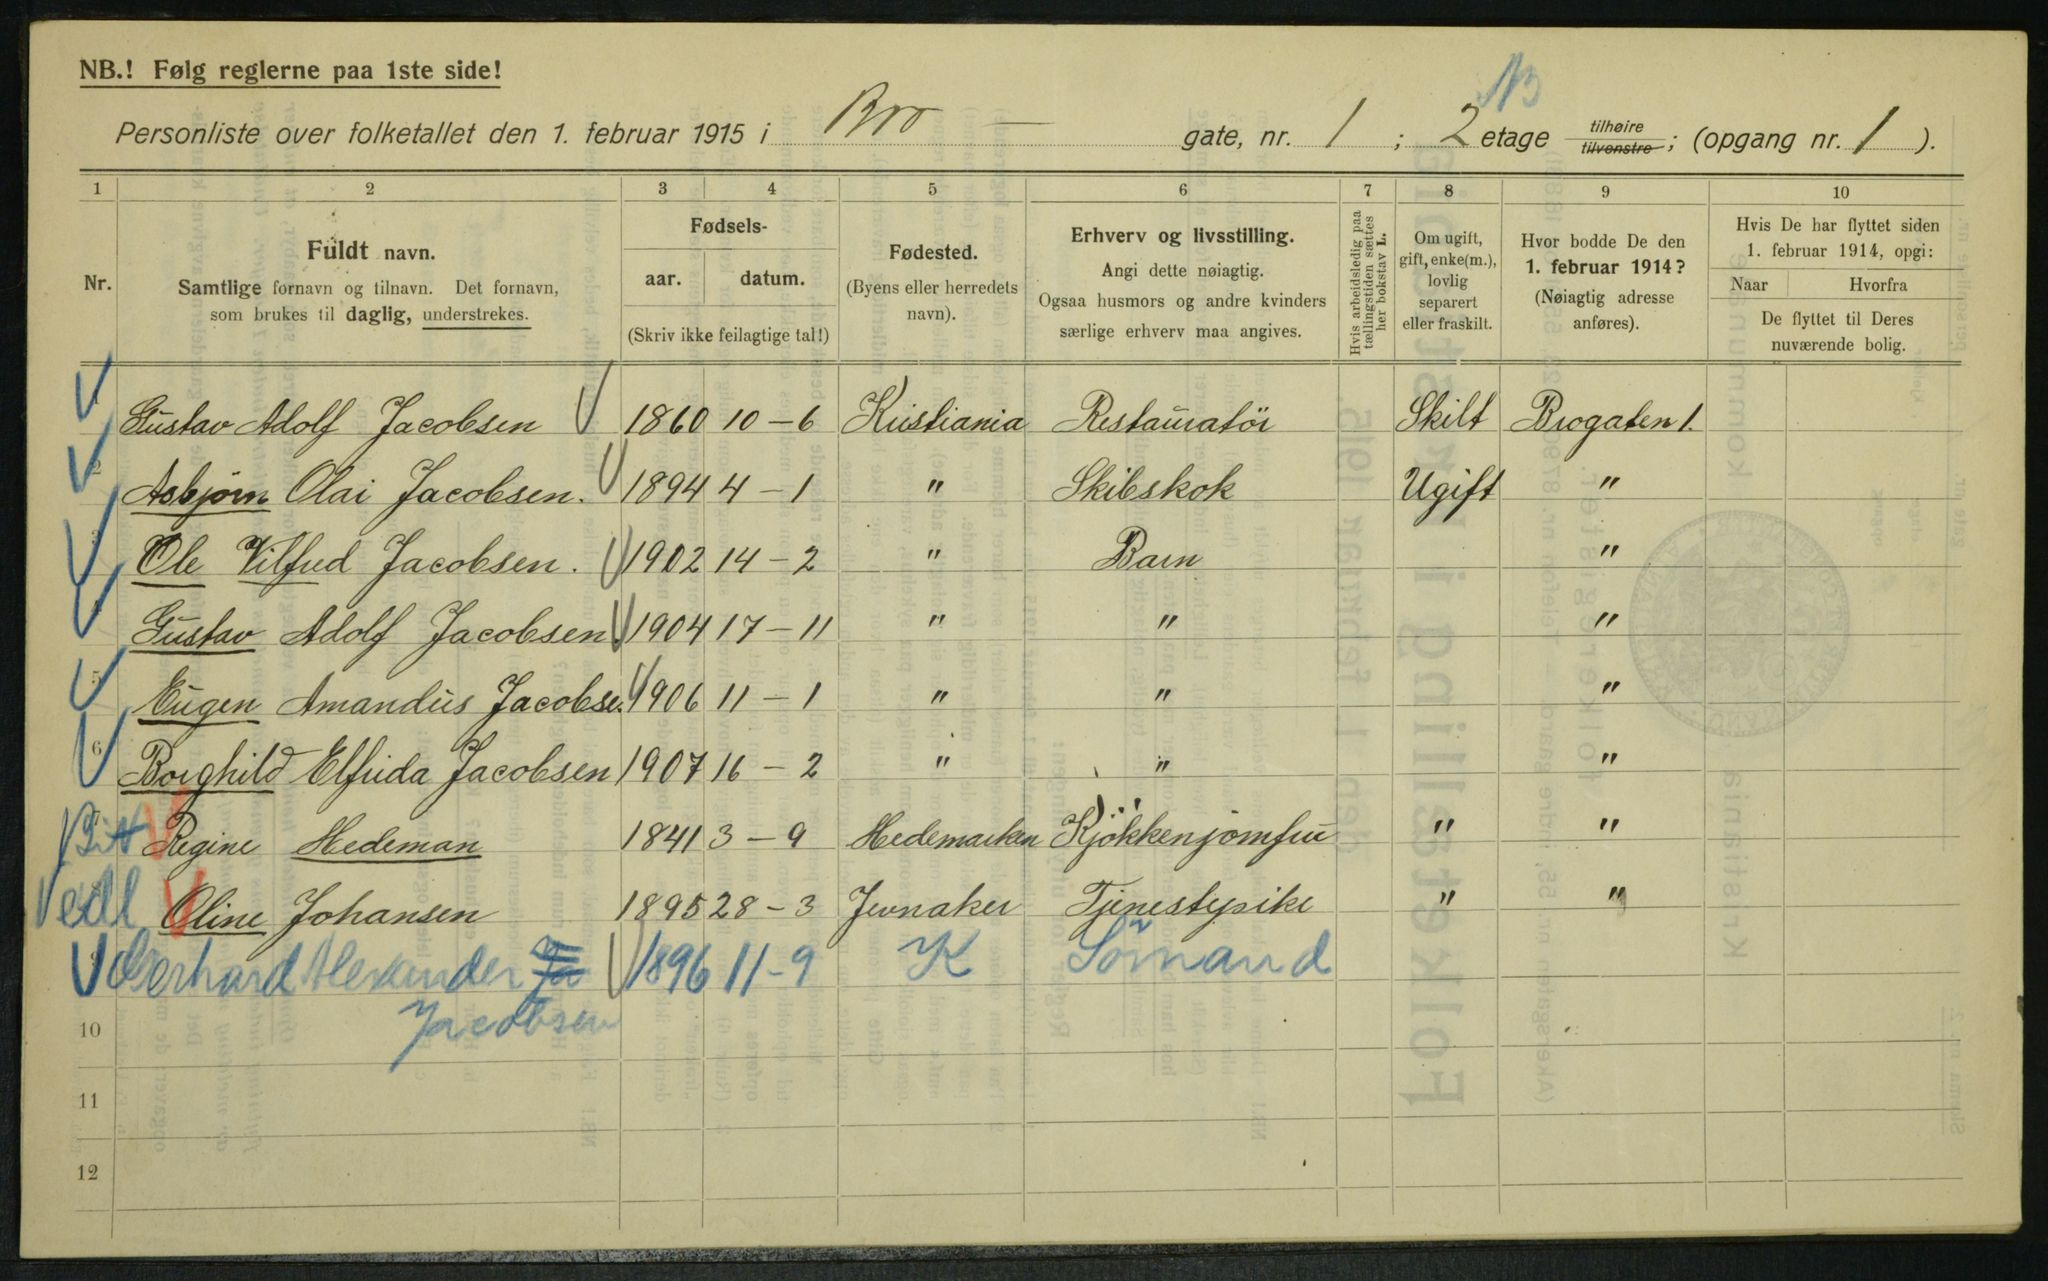 NB.! Følg reglerne paa 1ste side!
NB
Personliste over folketallet den 1. februar 1915 i Bro — gate, nr. 1 ; 2 etage tilhøire tilvenstre ; (opgang nr. 1 ).
1 2 3 4 5 6 7 8 9 10
Nr. Fuldt navn. Samtlige fornavn og tilnavn. Det fornavn, som brukes til daglig, understrekes.
Fødsels-
aar. datum.
(Skriv ikke feilagtige tal!)
Fødested. (Byens eller herredets navn).
Erhverv og livsstilling. Angi dette nøiagtig. Ogsaa husmors og andre kvinders særlige erhverv maa angives.
Hvis arbeidsledig paa tællingstiden sættes her bokstav L.
Om ugift, gift, enke(m.), lovlig separert eller fraskilt.
Hvor bodde De den 1. februar 1914? (Nøiagtig adresse anføres).
Hvis De har flyttet siden 1. februar 1914, opgi:
Naar Hvorfra
De flyttet til Deres nuværende bolig.
Gustav Adolf Jacobsen 1860 10 – 6 Kristiania Restauratör Skilt Brogaten 1.
2 Asbjørn Olai Jacobsen. 1894 4 – 1 " Skibskok Ugift "
3 Ole Vilfred Jacobsen. 1902 14 – 2 " Barn "
4 Gustav Adolf Jacobsen. 1904 17 – 11 " " "
5 Eugen Amandus Jacobsen. 1906 11 – 1 " " "
6 Borghild Elfrida Jacobsen 1907 16 – 2 " " "
7 Regine Hedeman 1841 3 – 9 Hedemarken Kjökkenjomfru " "
8 Oline Johansen 1895 28 – 3 Jevnaker Tjenestepike " "
9 Gerhard Alexander Ja 1896 11 – 9 K Sömand
10 Jacobsen
11
12